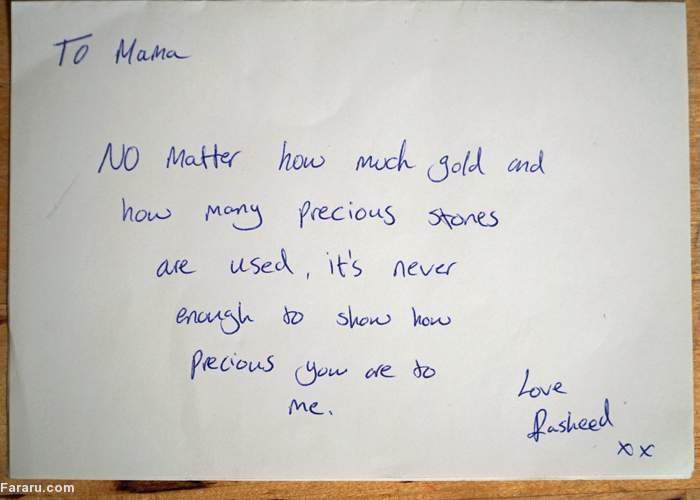 To Mama
No Matter how much gold and
how many precious stones
are used, it's never
enough to show how
precious you are to
me.
Love
Rasheed
xx
Fararu.com